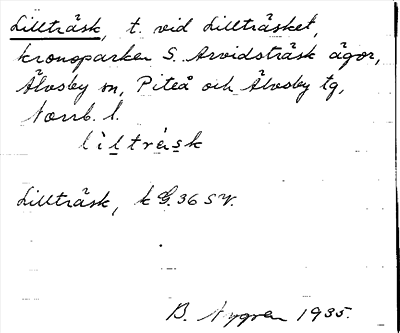 Lillträsk, t. vid Lillträsket,
kronoparken S. Arvidsträsk ägor,
Älvsby sn, Piteå och Älvsby tg,
Norrb. l.
lìltrásk
Lillträsk, k G. 36 SV.
B. Nygren 1935.